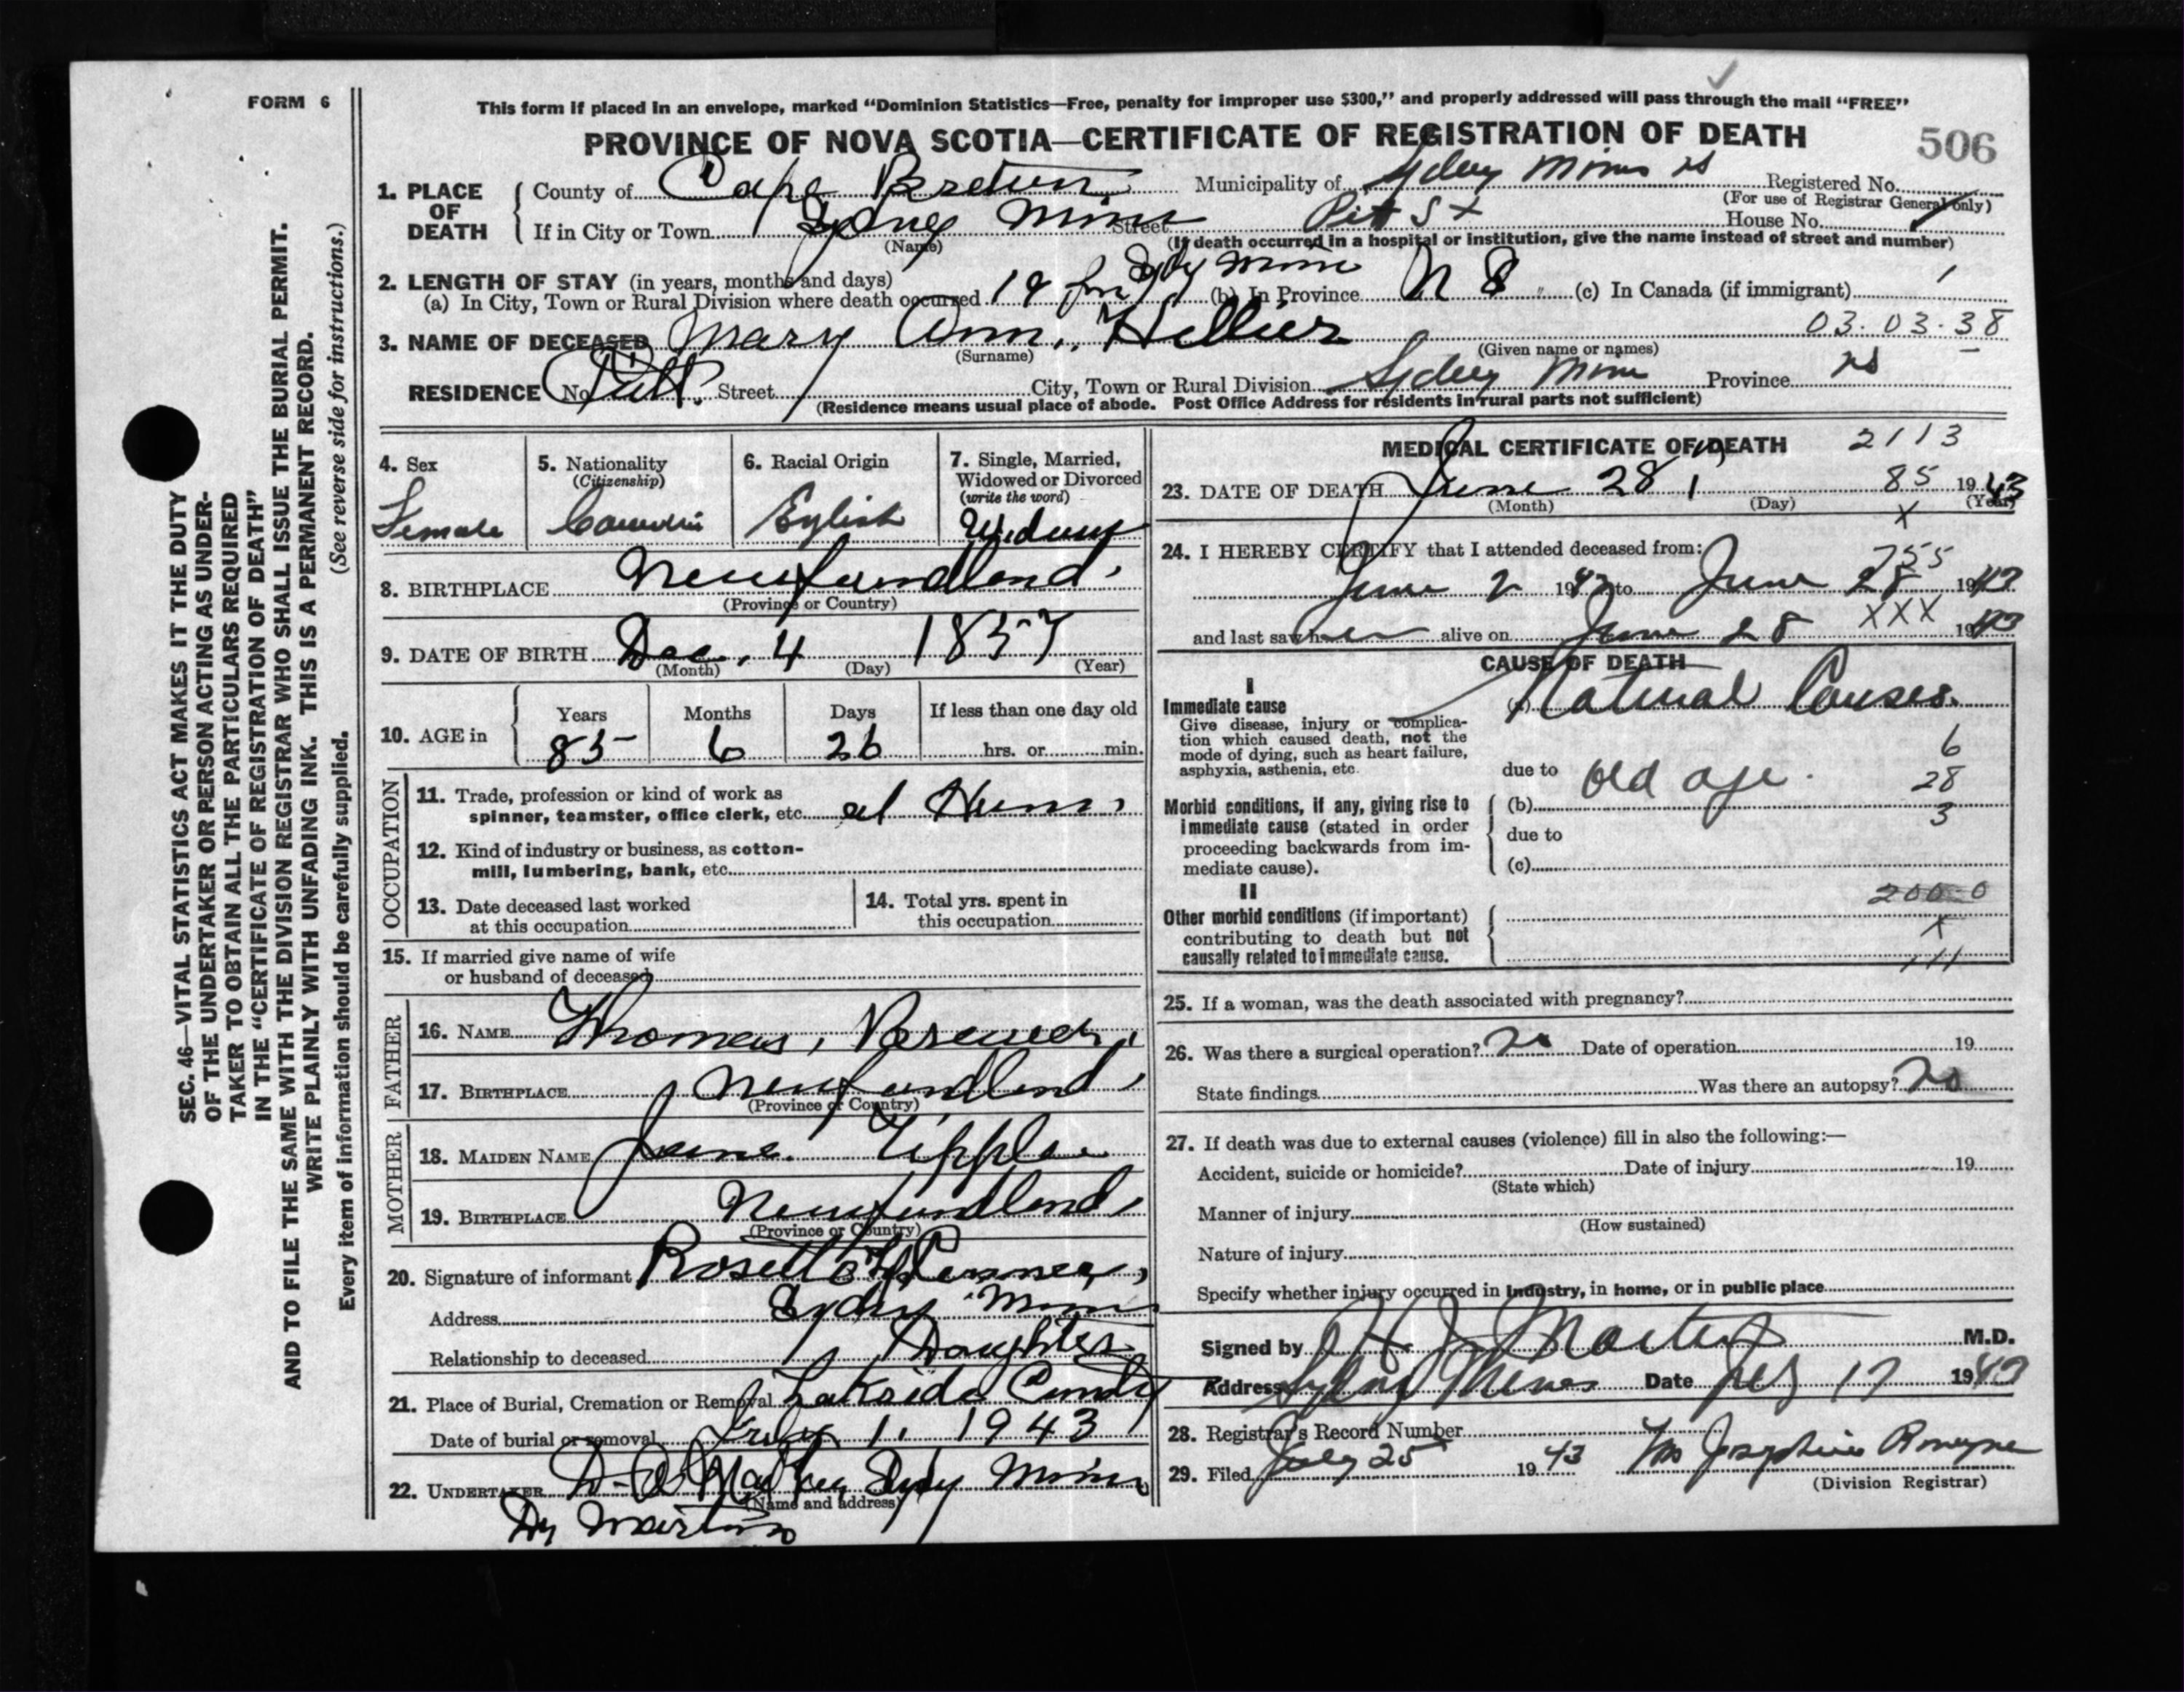 FORM 6
SEC. 46—VITAL STATISTICS ACT MAKES IT THE DUTY
OF THE UNDERTAKER OR PERSON ACTING AS UNDER-
TAKER TO OBTAIN ALL THE PARTICULARS REQUIRED
IN THE "CERTIFICATE OF REGISTRATION OF DEATH"
AND TO FILE THE SAME WITH THE DIVISION REGISTRAR WHO SHALL ISSUE THE BURIAL PERMIT.
WRITE PLAINLY WITH UNFADING INK. THIS IS A PERMANENT RECORD.
Every item of information should be carefully supplied. (See reverse side for instructions.)
This form if placed in an envelope, marked "Dominion Statistics—Free, penalty for improper use $300," and properly addressed will pass through the mail "FREE"
PROVINCE OF NOVA SCOTIA—CERTIFICATE OF REGISTRATION OF DEATH
506
1. PLACE OF DEATH County of Cape Breton Municipality of Sydney Mines NS Registered No.
(For use of Registrar General only)
If in City or Town Sydney Mines Street Pitt St House No.
(Name) (If death occurred in a hospital or institution, give the name instead of street and number)
2. LENGTH OF STAY (in years, months and days)
(a) In City, Town or Rural Division where death occurred (b) In Province N S (c) In Canada (if immigrant)
3. NAME OF DECEASED Mary Ann Hillier 03.03.38
(Surname) (Given name or names)
RESIDENCE No. Pitt Street City, Town or Rural Division Sydney Mines Province NS
(Residence means usual place of abode. Post Office Address for residents in rural parts not sufficient)
4. Sex Female
5. Nationality (Citizenship) Canadian
6. Racial Origin English
7. Single, Married, Widowed or Divorced (write the word) Widow
8. BIRTHPLACE Newfoundland
(Province or Country)
9. DATE OF BIRTH Dec. 4 1857
(Month) (Day) (Year)
10. AGE in Years 85 Months 6 Days 26 If less than one day old hrs. or min.
OCCUPATION
11. Trade, profession or kind of work as
spinner, teamster, office clerk, etc. at Home
12. Kind of industry or business, as cotton-
mill, lumbering, bank, etc.
13. Date deceased last worked
at this occupation
14. Total yrs. spent in
this occupation
15. If married give name of wife
or husband of deceased
FATHER
16. NAME Thomas
17. BIRTHPLACE Newfoundland
(Province or Country)
MOTHER
18. MAIDEN NAME Jane Tipple
19. BIRTHPLACE Newfoundland
(Province or Country)
20. Signature of informant
Address Sydney Mines
Relationship to deceased Daughter
21. Place of Burial, Cremation or Removal Lakeside
Date of burial or removal July 1. 1943
22. UNDERTAKER Sydney Mines
(Name and address)
MEDICAL CERTIFICATE OF DEATH 2113
23. DATE OF DEATH June 28 85 1943
(Month) (Day) (Year)
X
24. I HEREBY CERTIFY that I attended deceased from: 755
June 2 1943 to June 28 1943
and last saw her alive on June 28 XXX 1943
CAUSE OF DEATH
I
Immediate cause
Give disease, injury or complica-
tion which caused death, not the
mode of dying, such as heart failure,
asphyxia, asthenia, etc.
(a) Natural Causes.
6
due to old age.
28
Morbid conditions, if any, giving rise to
immediate cause (stated in order
proceeding backwards from im-
mediate cause).
(b) 3
due to
(c)
II
Other morbid conditions (if important)
contributing to death but not
causally related to immediate cause.
X
111
25. If a woman, was the death associated with pregnancy?
26. Was there a surgical operation? No Date of operation 19
State findings Was there an autopsy? No
27. If death was due to external causes (violence) fill in also the following:—
Accident, suicide or homicide? Date of injury 19
(State which)
Manner of injury
(How sustained)
Nature of injury
Specify whether injury occurred in industry, in home, or in public place
Signed by M.D.
Address Sydney Mines Date 17 1943
28. Registrar's Record Number
29. Filed July 25 1943 Mrs Josephine
(Division Registrar)